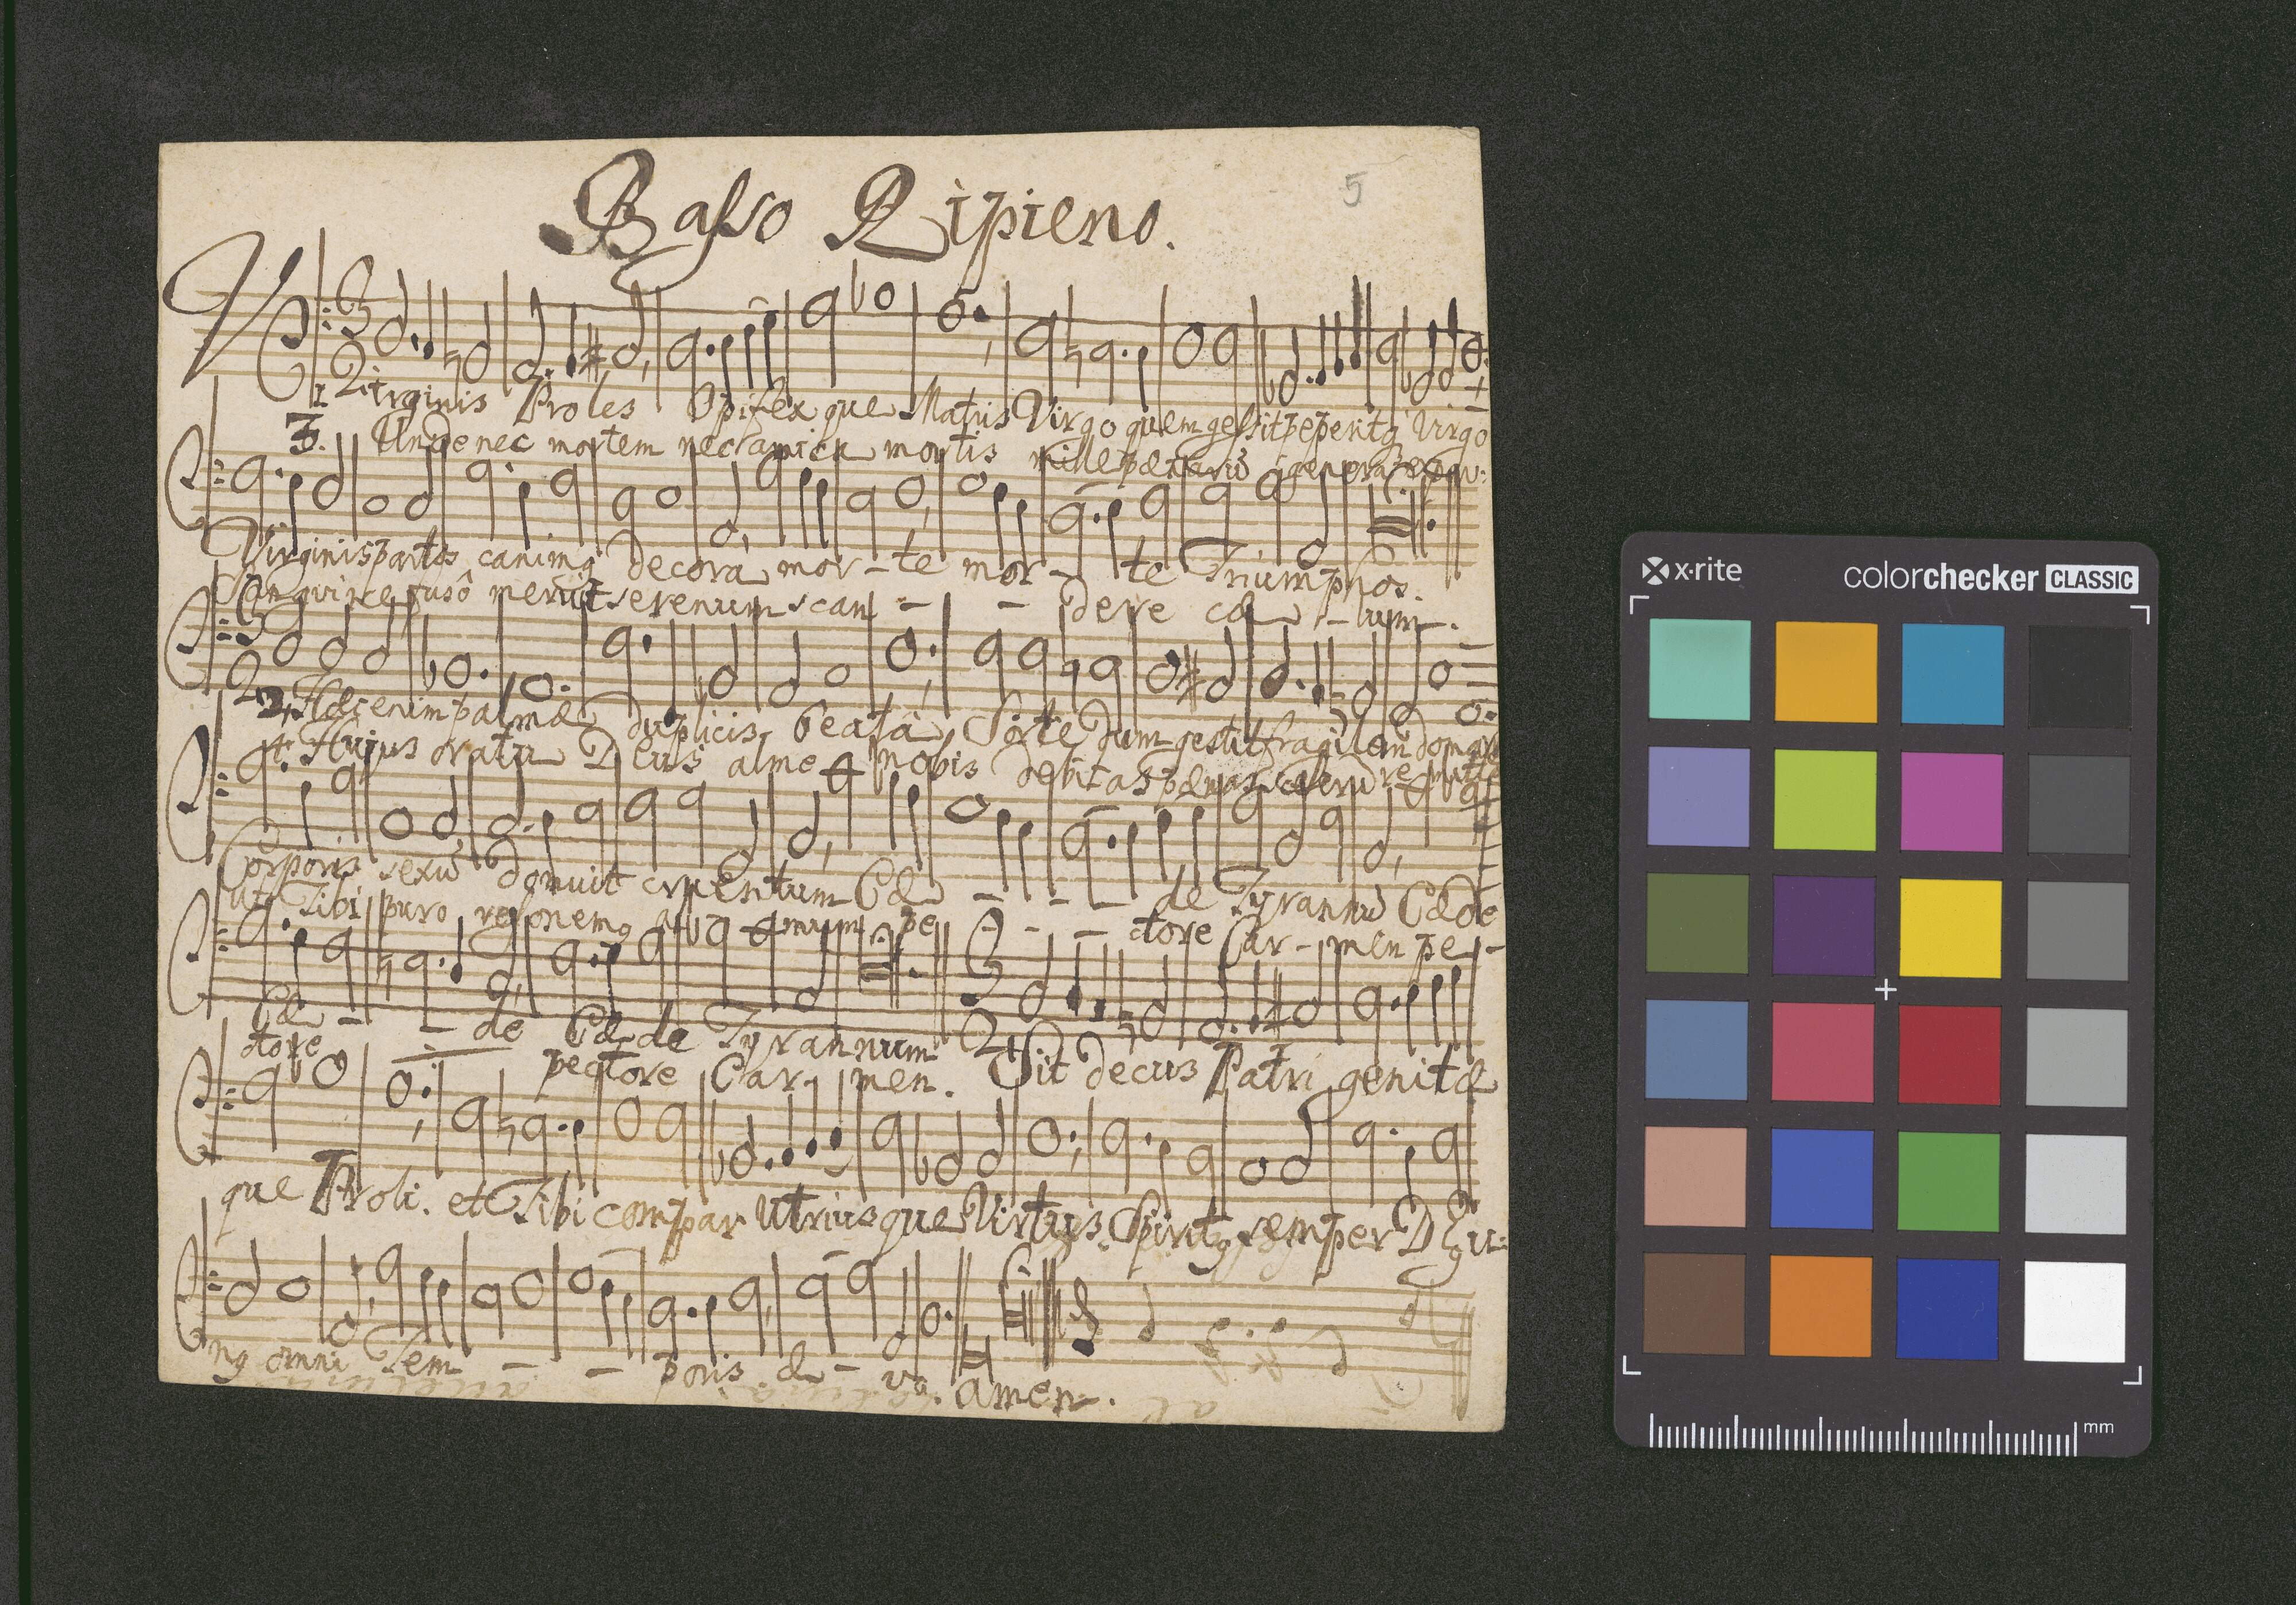 Basso Ripieno.
5
1. Virginis Proles Opifexque Matris Virgo quem gessit peperitq Virgo
3. Unde nec mortem nec amica mortis mille pænarũ genera
Virginis partos canimq decora mor - te mor - te Triumphos.
Sanguine fusô meruit serenum scan - - dere cæ - lum.
2. Hæc enim palmæ duplicis beata Sorte dum gestit fragilem domare
4. Hujus oratu Deus alme Nobis debitas pænas scelerũ remitte
Corporis sexũ domuit cruentum Cæ - - - de Tyrannũ Cæde
ut Tibi puro resonemq almum pe - - - ctore Car - men pe -
Cæ - - de Cæde Tyrannum
ctore pectore Car - men. Sit decus Patri genitæ
que Proli. et Tibi compar Utriusque Virtus. Spiritq semper Deq u:
nq omni Tem - - poris æ - vo. amen.
x-rite
colorchecker CLASSIC
mm